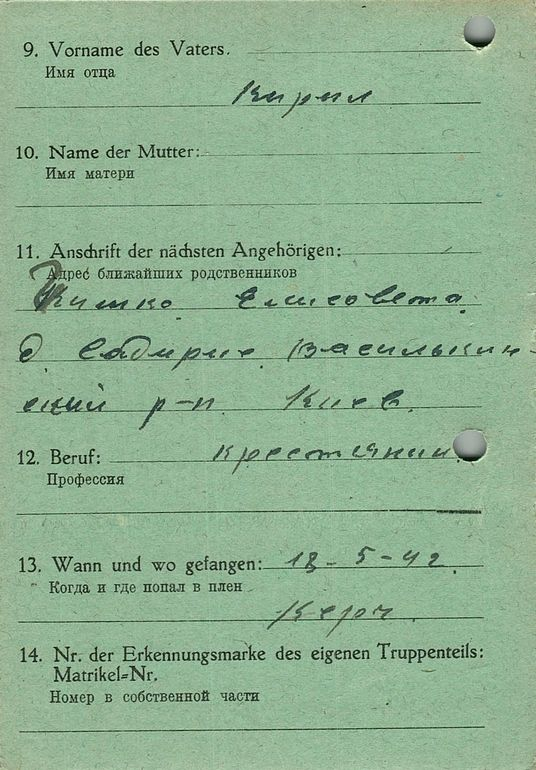 9. Vorname des Vaters.
Имя отца
Кирил
10. Name der Mutter:
Имя матери
11. Anschrift der nächsten Angehörigen:
Адрес ближайших родственников
Елисовета
д. Василькин-
ский р-н. Киев.
12. Beruf: крестянин
Профессия
13. Wann und wo gefangen: 18-5-42.
Когда и где попал в плен
Керч.
14. Nr. der Erkennungsmarke des eigenen Truppenteils:
Matrikel=Nr.
Номер в собственной части